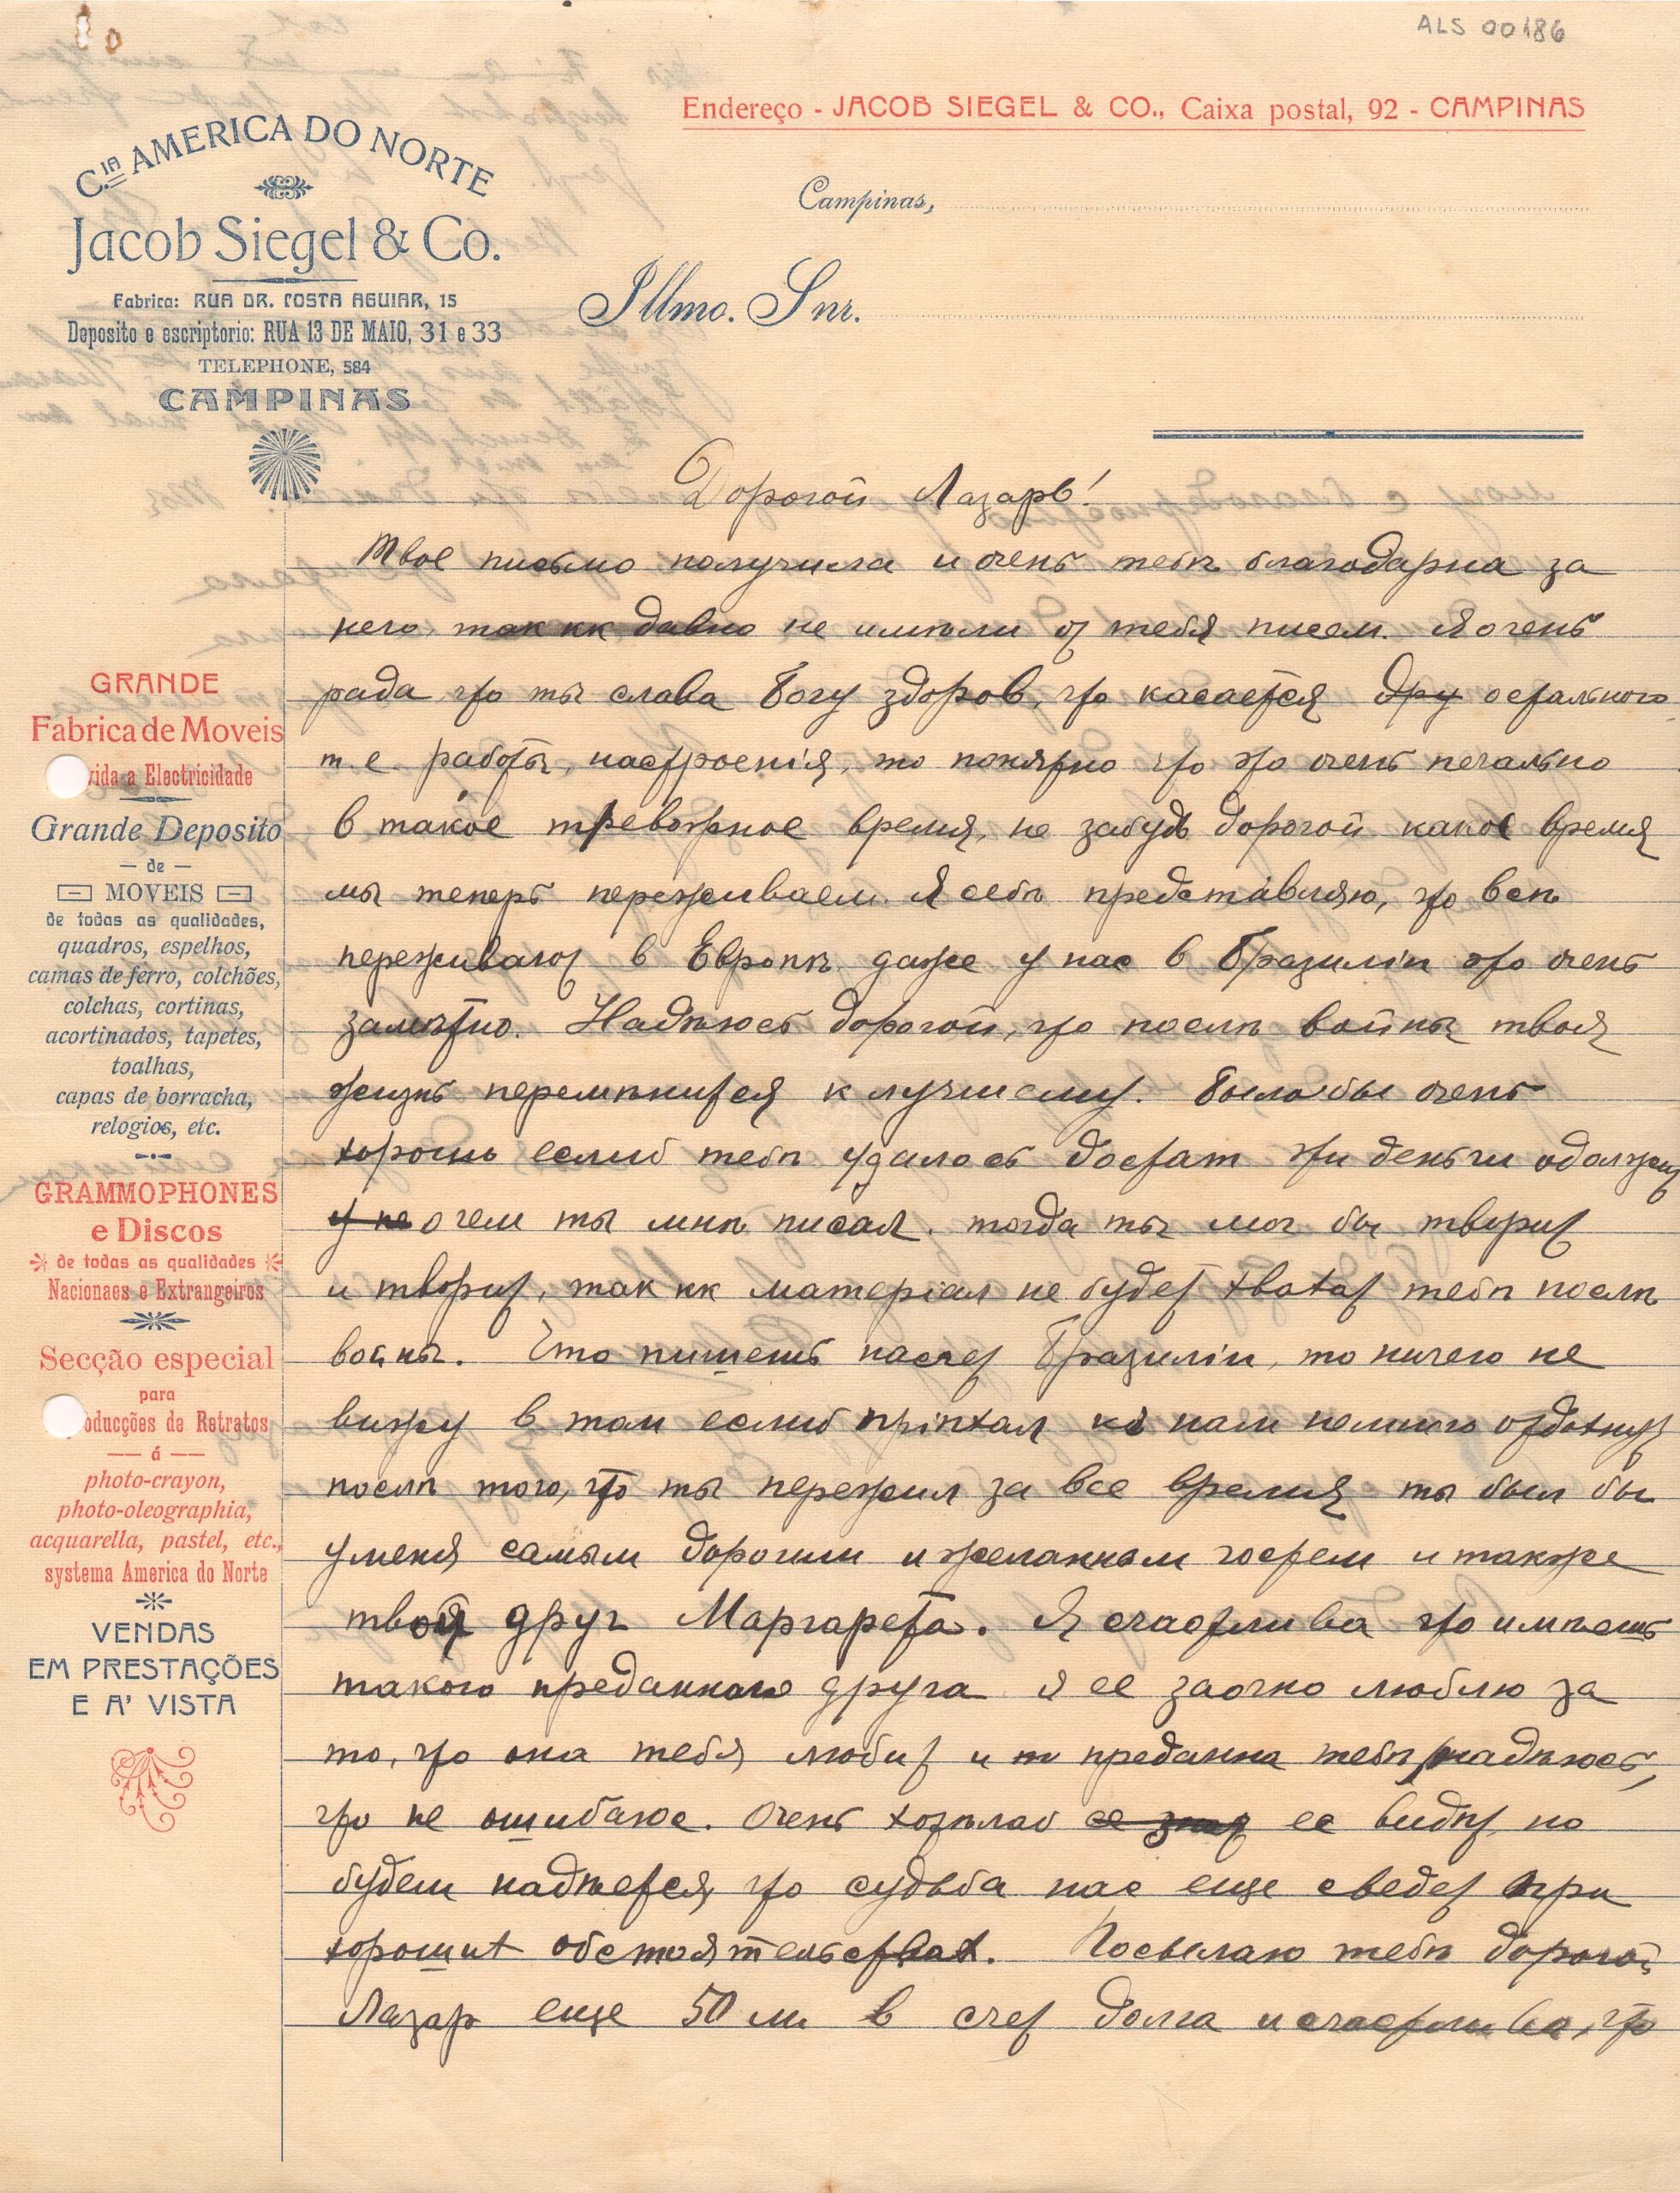 ALS 00186
Endereço - JACOB SIEGEL & CO., Caixa postal, 92 - CAMPINAS
Cia AMERICA DO NORTE
Jacob Siegel & Co.
Fabrica: RUA DR. COSTA AGUIAR, 15
Deposito e escriptorio: RUA 13 DE MAIO, 31 e 33
TELEPHONE, 584
CAMPINAS
Campinas,
Illmo. Snr.
GRANDE
Fabrica de Moveis
vida a Electricidade
Grande Deposito
— de —
MOVEIS
de todas as qualidades,
quadros, espelhos,
camas de ferro, colchões,
colchas, cortinas,
acortinados, tapetes,
toalhas,
capas de borracha,
relogios, etc.
GRAMMOPHONES
e Discos
de todas as qualidades
Nacionaes e Extrangeiros
Secção especial
para
oducções de Retratos
— á —
photo-crayon,
photo-oleographia,
acquarella, pastel, etc.,
systema America do Norte
VENDAS
EM PRESTAÇÕES
E A' VISTA
Дорогой Лазарь!
Твое письмо получила и очень тебѣ благодарна за
него, так кк давно не имѣли от тебя писем. Я очень
рада что ты слава Богу здоров, что касается дру остального
т.е. работы, настроенія, то понятно что это очень печально
в такое тревожное время, не забудь дорогой какое время
мы теперь переживаем. Я себѣ представляю, что всѣ
переживают в Европѣ даже у нас в Бразиліи это очень
замѣтно. Надѣюсь дорогой, что послѣ войны твоя
жизнь перемѣнится к лучшему. Было бы очень
хорошо еслиб тебѣ удалось достат эти деньги одолжит
у не о чем ты мнѣ писал. тогда ты мог бы творит
и творит, так кк матеріал не будет хватат тебѣ послѣ
войны. Что пишешь насчет Бразиліи, то ничего не
вижу в том еслиб пріѣхал кь нам немного отдохнут
послѣ того, что ты пережил за все время ты был бы
у меня самым дорогим и желанным гостем и также
твой друг Маргарета. Я счастлива что имѣешь
такого преданного друга я ее заочно люблю за
то, что она тебя любит и преданна тебѣ, надѣюсь,
что не ошибаюс. Очень хотѣлаб ее ее видѣт, но
будем надѣется, что судьба нас еще сведет при
хороших обстоятельствах. Посылаю тебѣ дорогой
Лазар еще 50 м в счет долга и счастлива, что